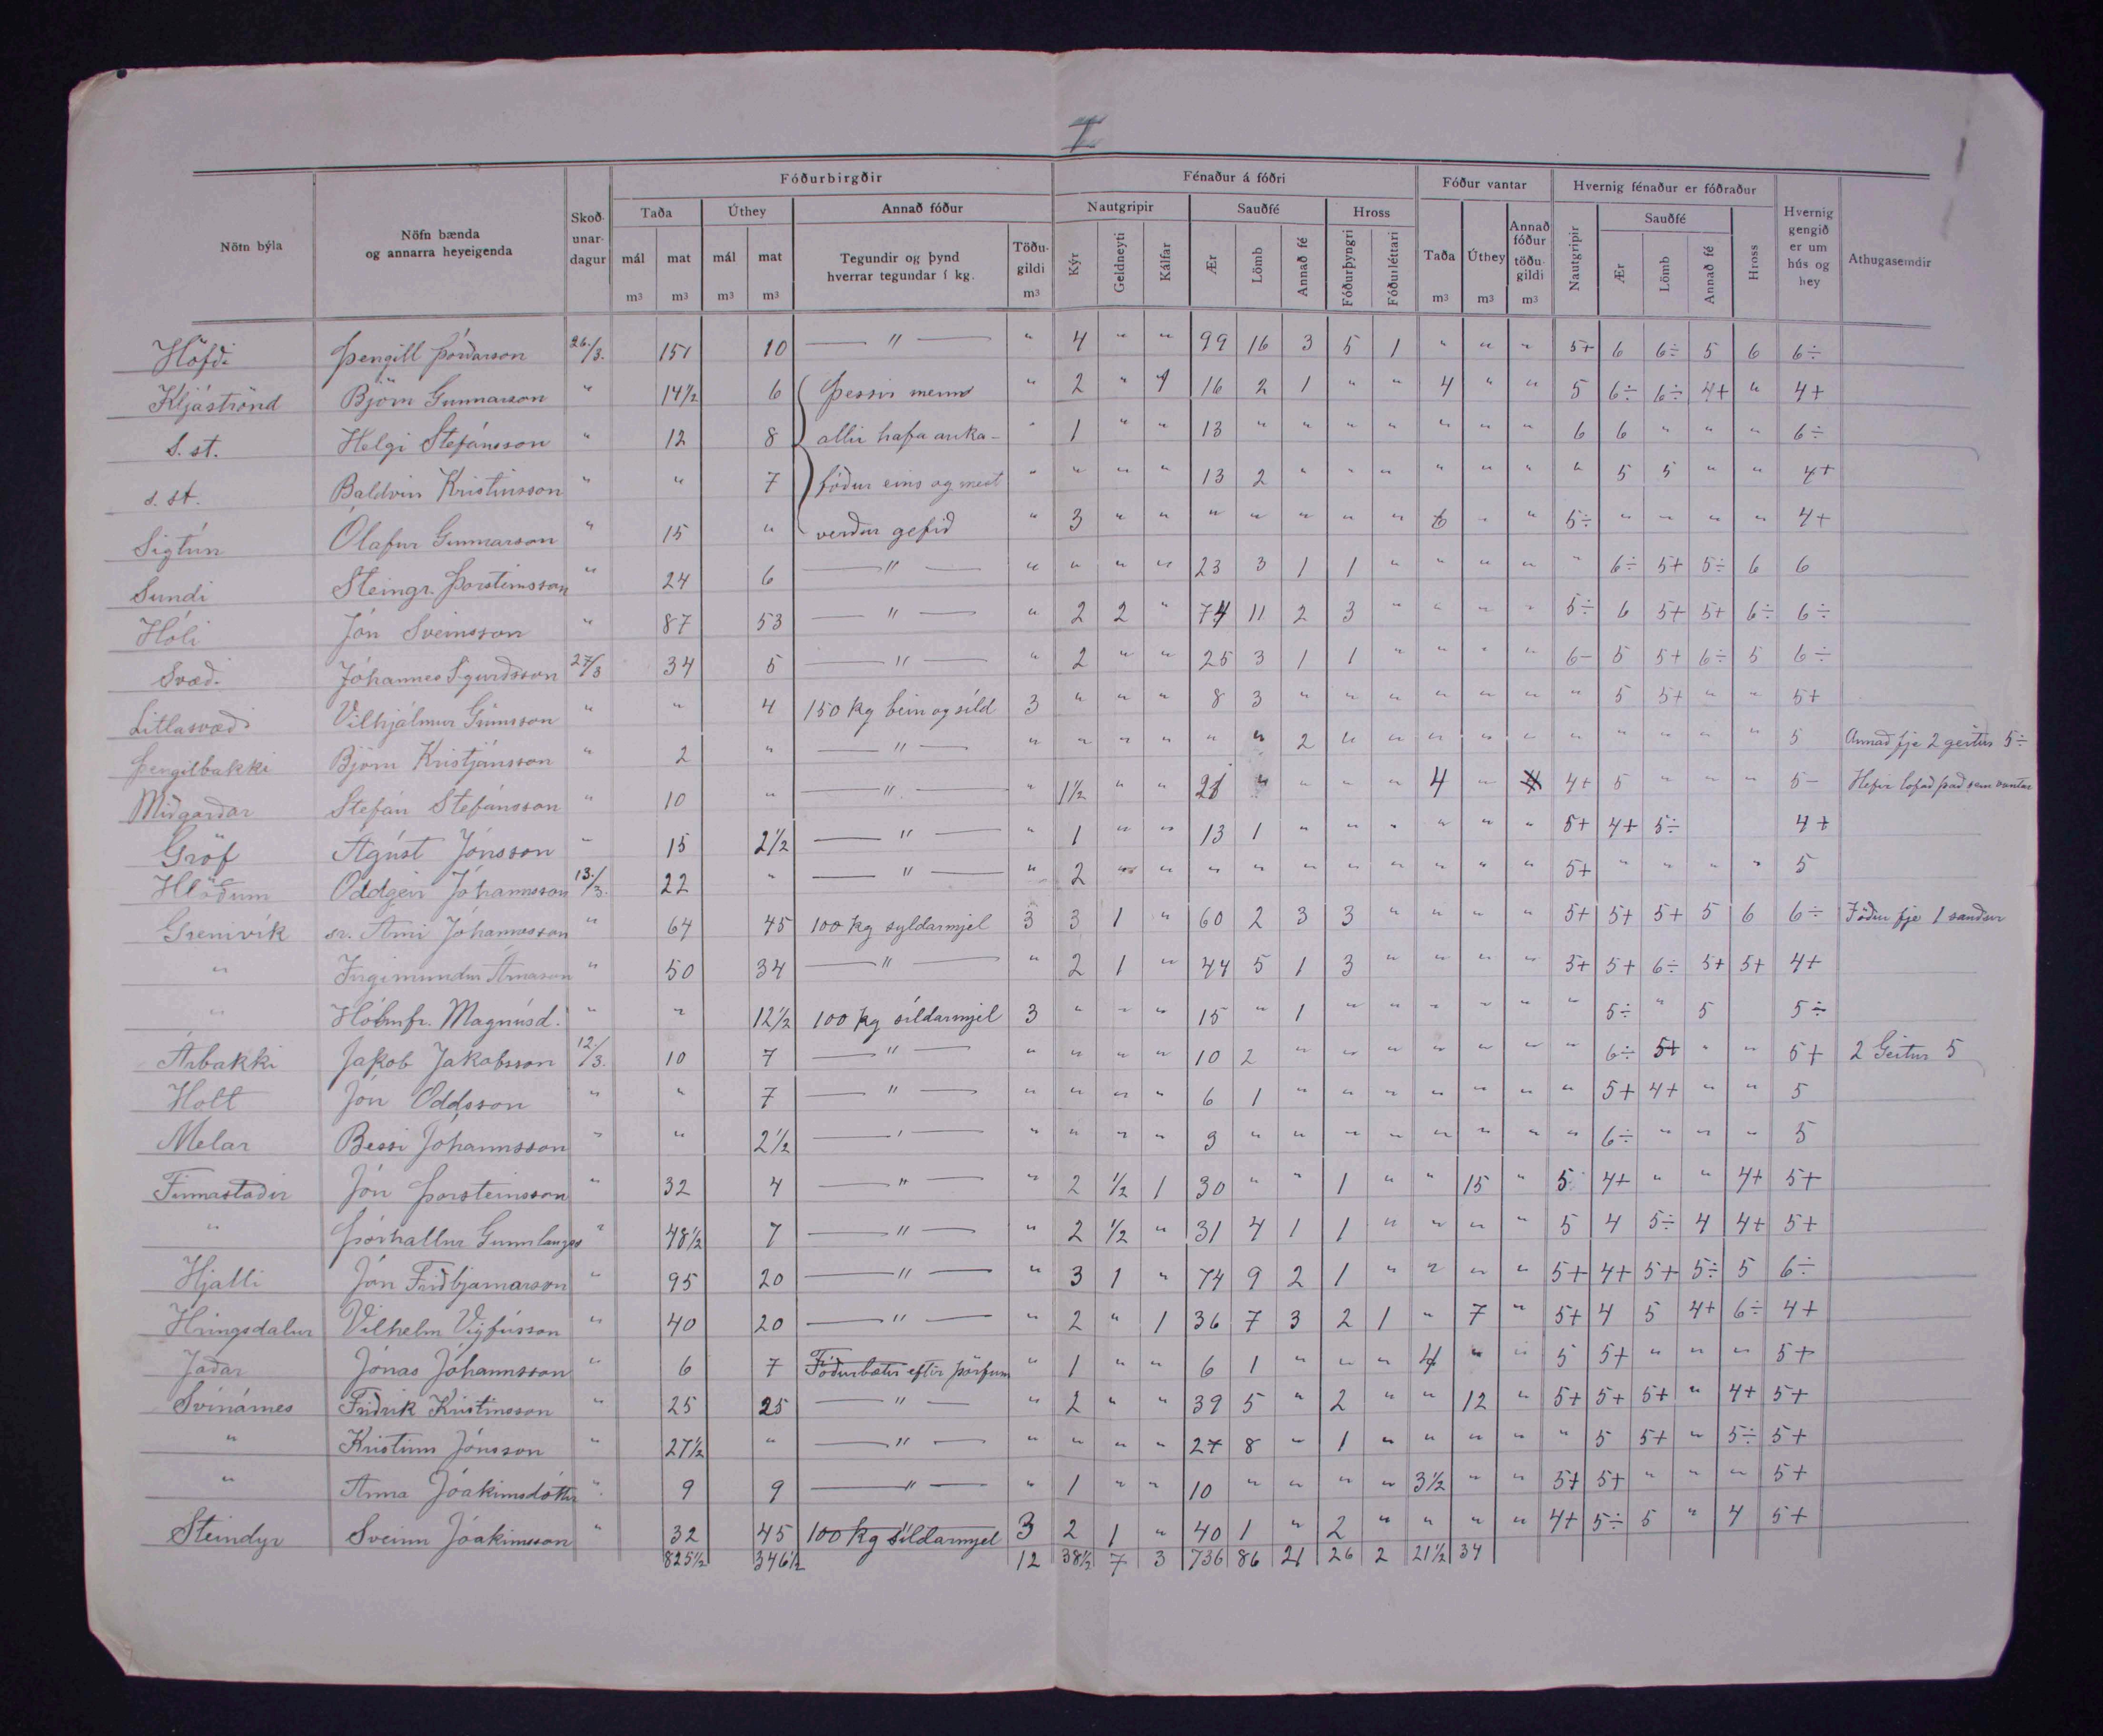 I
Nöfn býla
Nöfn bænda og annarra heyeigenda
Skoð- unar- dagur
Fóðurbirgðir
Taða
mál m³
mat m³
Úthey
mál m³
mat m³
Annað fóður
Tegundir og þynd hverrar tegundar í kg.
Töðu- gildi m³
Fénaður á fóðri
Nautgripir
Kýr
Geldneyti
Kálfar
Sauðfé
Ær
Lömb
Annað fé
Hross
Fóðurþyngri
Fóðurléttari
Fóður vantar
Taða m³
Úthey m³
Annað fóður töðu- gildi m³
Hvernig fénaður er fóðraður
Nautgripir
Sauðfé
Ær
Lömb
Annað fé
Hross
Hvernig gengið er um hús og hey
Athugasemdir
Höfði Þengill Þórðarson 26./3. 151 10 — " — " 4 " " 99 16 3 5 1 " " " 5+ 6 6÷ 5 6 6÷
Kljáströnd Björn Gunnarson " 14½ 6 Þessir menn " 2 " 1 16 2 1 " " 4 " " 5 6÷ 6÷ 4+ " 4+
S. st. Helgi Stefánsson " 12 8 allir hafa auka- " 1 " " 13 " " " " " " " 6 6 " " " 6÷
s. st. Baldvin Kristinsson " " 7 fóður eins og mest " " " " 13 2 " " " " " " " 5 5 " " 4+
Sigtún Ólafur Gunnarson " 15 " verður gefið " 3 " " " " " " " 6 " " 5÷ " " " " 4+
Sundi Steingr. Þorsteinsson " 24 6 — " — " " " " 23 3 1 1 " " " " " 6÷ 5+ 5÷ 6 6
Hóli Jón Sveinsson " 87 53 — " — " 2 2 " 74 11 2 3 " " " " 5÷ 6 5+ 5+ 6÷ 6÷
Svæði Jóhannes Sigurðsson 27/3 34 5 — " — " 2 " " 25 3 1 1 " " " " 6- 5 5+ 6÷ 5 6÷
Litlasvæði Vilhjálmur Grímsson " " 4 150 kg bein og síld 3 " " " 8 3 " " " " " " " 5 5+ " " 5+
Þengilbakki Björn Kristjánsson " 2 " — " — " " " " " " 2 " " " " " " " " " " 5 Annað fje 2 geitur 5÷
Miðgarðar Stefán Stefánsson " 10 " — " — " 1½ " " 28 " " " " 4 " 4+ 5 " " " 5- Hefir lofað það sem vantar
Gröf Ágúst Jónsson " 15 2½ — " — " 1 " " 13 1 " " " " " " 5+ 4+ 5÷ 4+
Hlöðum Oddgeir Jóhannsson 13./3. 22 " — " — " 2 " " " " " " " " " " 5+ " " " " 5
Grenivík sr. Árni Jóhannesson " 64 45 100 kg syldarmjel 3 3 1 " 60 2 3 3 " " " " 5+ 5+ 5+ 5 6 6÷ Fóður fje 1 sauður
" Ingimundur Árnason " 50 34 — " — " 2 1 " 44 5 1 3 " " " " 5+ 5+ 6÷ 5+ 5+ 4+
" Hólmfr. Magnúsd. " " 12½ 100 kg síldarmjel 3 " " " 15 " 1 " " " " " " 5÷ " 5 5÷
Árbakki Jakob Jakobsson 12/3. 10 7 — " — " " " " 10 2 " " " " " " " 6÷ 5+ " " 5+ 2 Geitur 5
Holt Jón Oddsson " " 7 — " — " " " " 6 1 " " " " " " " 5+ 4+ " " 5
Melar Bessi Jóhannsson " " 2½ — ' — " " " " 9 " " " " " " " " 6÷ " " " 5
Finnastaðir Jón Þorsteinsson " 32 4 — " — " 2 ½ 1 30 " " 1 " " 15 " 5 4+ " " 4+ 5+
" Þórhallur Gunnlaugss " 48½ 7 — " — " 2 ½ " 31 4 1 1 " " " " 5 4 5÷ 4 4+ 5+
Hjalli Jón Friðbjarnarson " 95 20 — " — " 3 1 " 74 9 2 1 " " " " 5+ 4+ 5+ 5÷ 5 6÷
Hringsdalur Vilhelm Vigfússon " 40 20 — " — " 2 " 1 36 7 3 2 1 " 7 " 5+ 4 5 4+ 6÷ 4+
Jaðar Jónas Jóhannsson " 6 7 Fóðurbætir eftir þörfum " 1 " " 6 1 " " " 4 " " 5 5+ " " " 5+
Svínárnes Friðrik Kristinsson " 25 25 — " — " 2 " " 39 5 " 2 " " 12 " 5+ 5+ 5+ " 4+ 5+
" Kristinn Jónsson " 27½ " — " — " " " " 27 8 " 1 " " " " " 5 5+ " 5÷ 5+
" Anna Jóakimsdóttir " 9 9 — " — " 1 " " 10 " " " " 3½ " " 5+ 5+ " " " 5+
Steindyr Sveinn Jóakimsson " 32 45 100 kg síldarmjel 3 2 1 " 40 1 " 2 " " " " 4+ 5÷ 5 " 4 5+
825½ 346½ 12 38½ 7 3 736 86 21 26 2 21½ 34